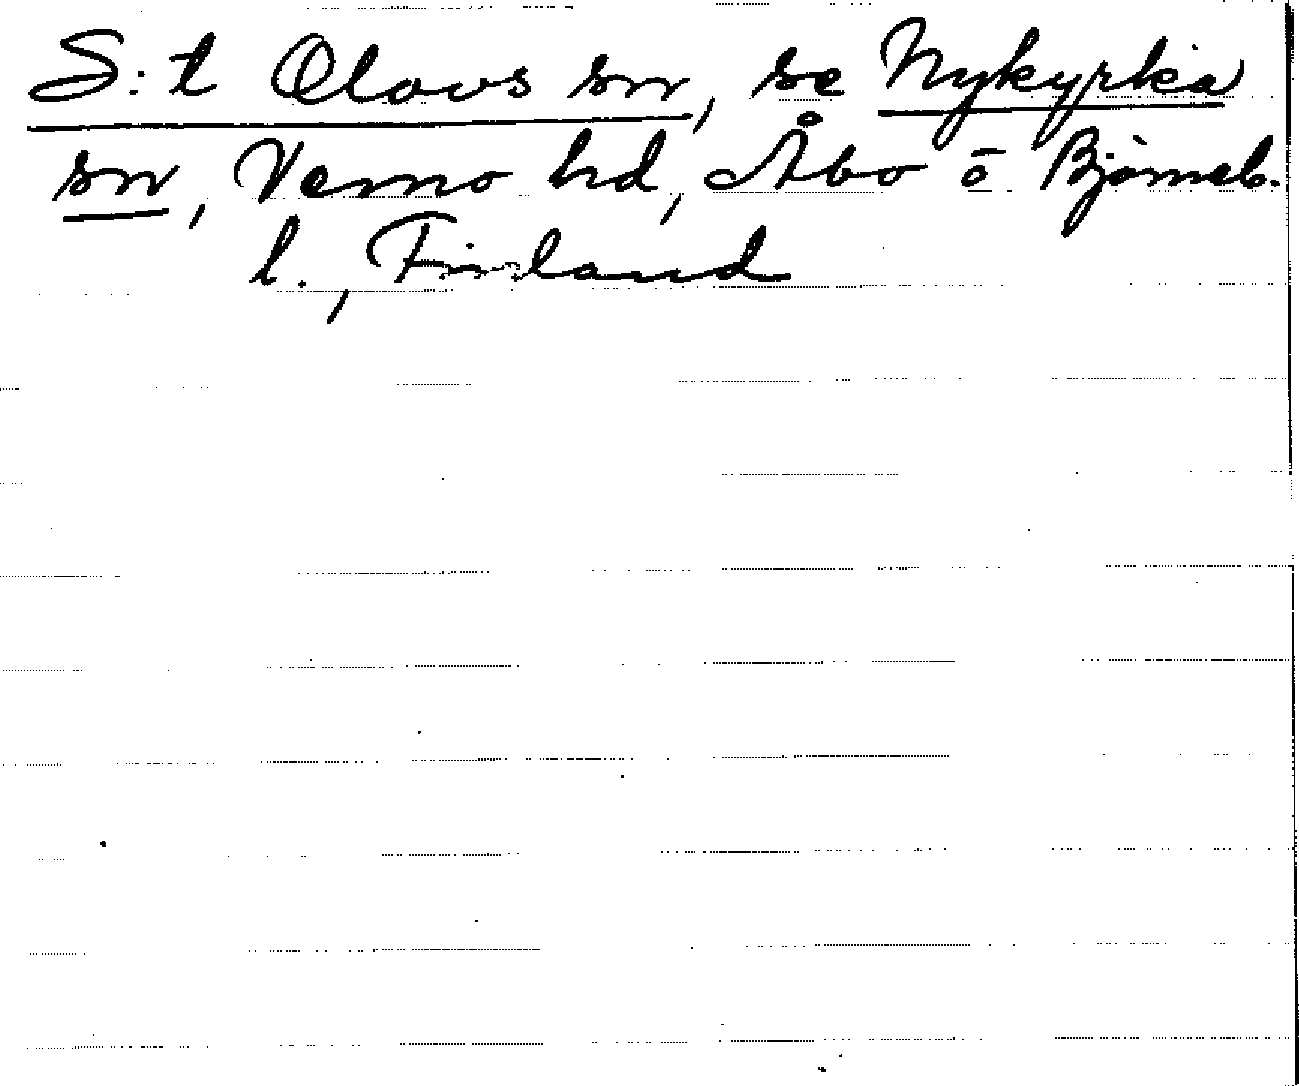 S:t Olovs sn, se Nykyrka
sn, Vemo hd, Åbo o Björneb.
l., Finland